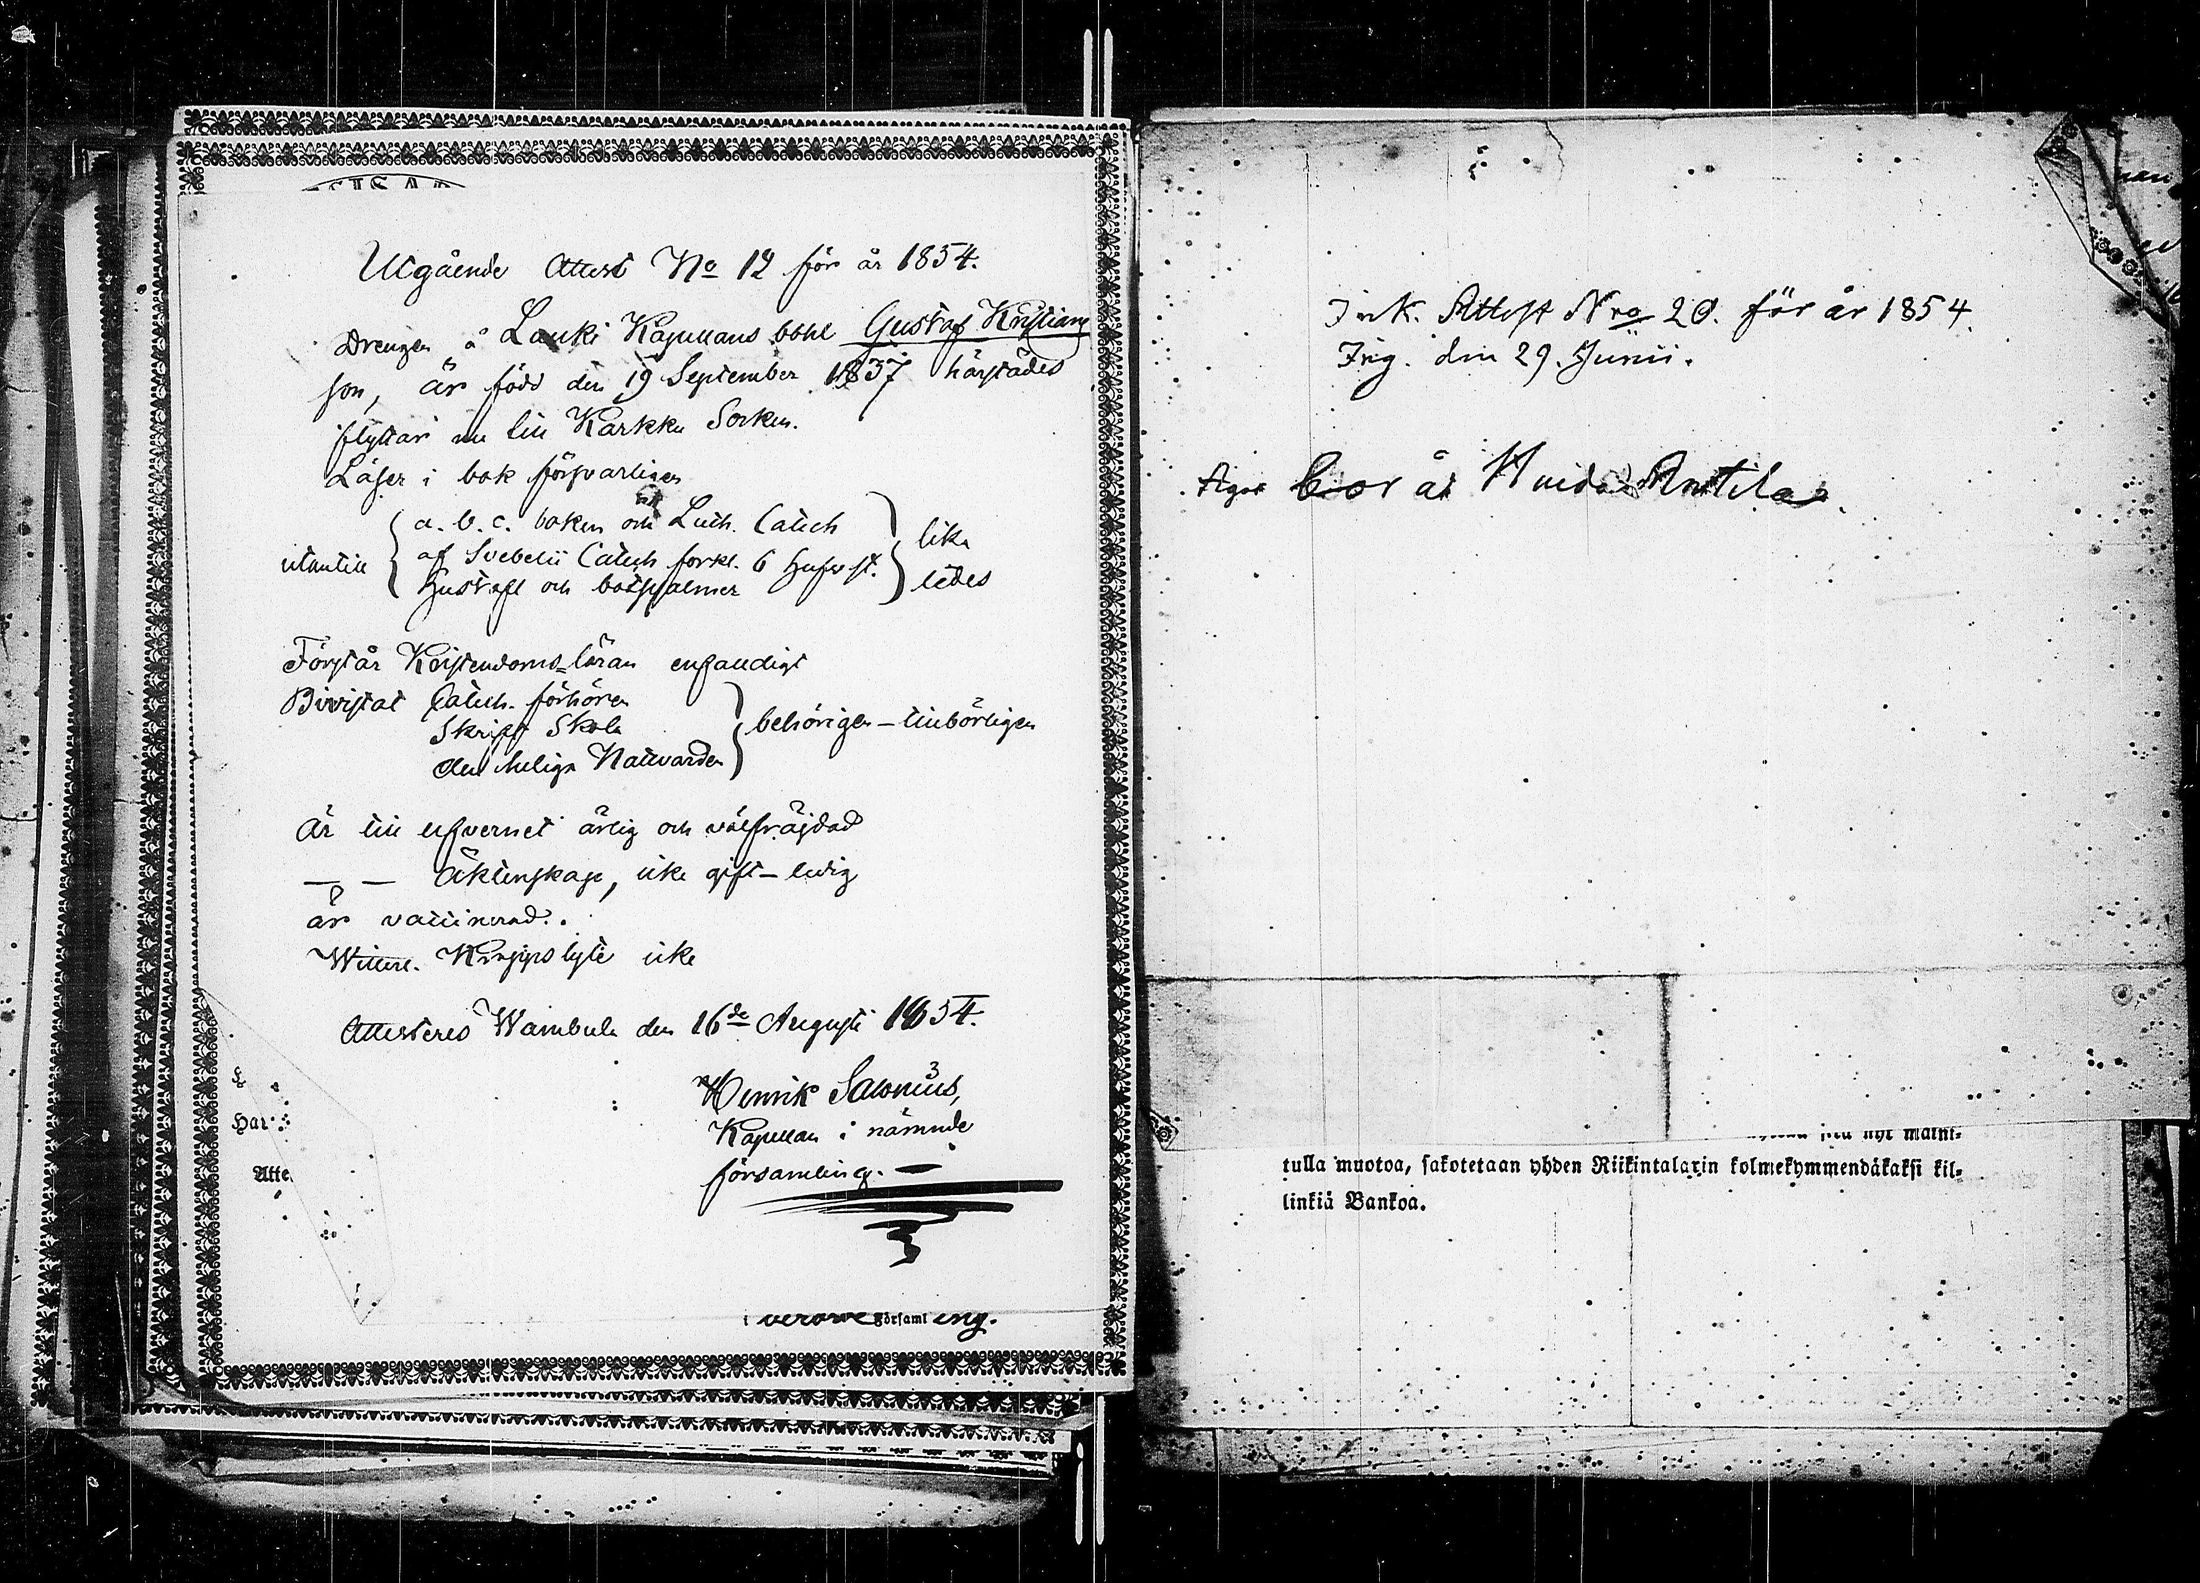 Utgående Attest No 12 för år 1854.
Drengen å Lauki Kapellans bohl Gustaf Kristians
son, är född den 19 September 1837 härstädes
flyttar nu till Karkku Socken.
Läser i bok försvarligen
utantill a. b. c. boken och Luth. Catech
af Svebelii Catech förkl. 6 hufvst.
Hustafl och botpsalmer
lika
ledes
Förstår Kristendoms-läran enfaudigt
Bivistat Catech. förhören
Skrift Skola
den heliga Nattvarden
behörigen - tillbörligen
Är till lefvernet ärlig och välfräjdad
— — Äktenskap, icke gift - ledig
är vaccinerad.
Kroppslyte icke
Attesteres Wambula den 16de Augusti 1854.
Henrik Salonius,
Kapellan i nämnde
församling. —
Har
Atte
i
församl ing.
Ink. Attest Nro 20. för år 1854.
den 29. Junii.
bor å Antila
tulla muotoa, sakotetaan yhden Riikintalarin kolmekymmendäkaksi kil-
linkiä Bankoa.